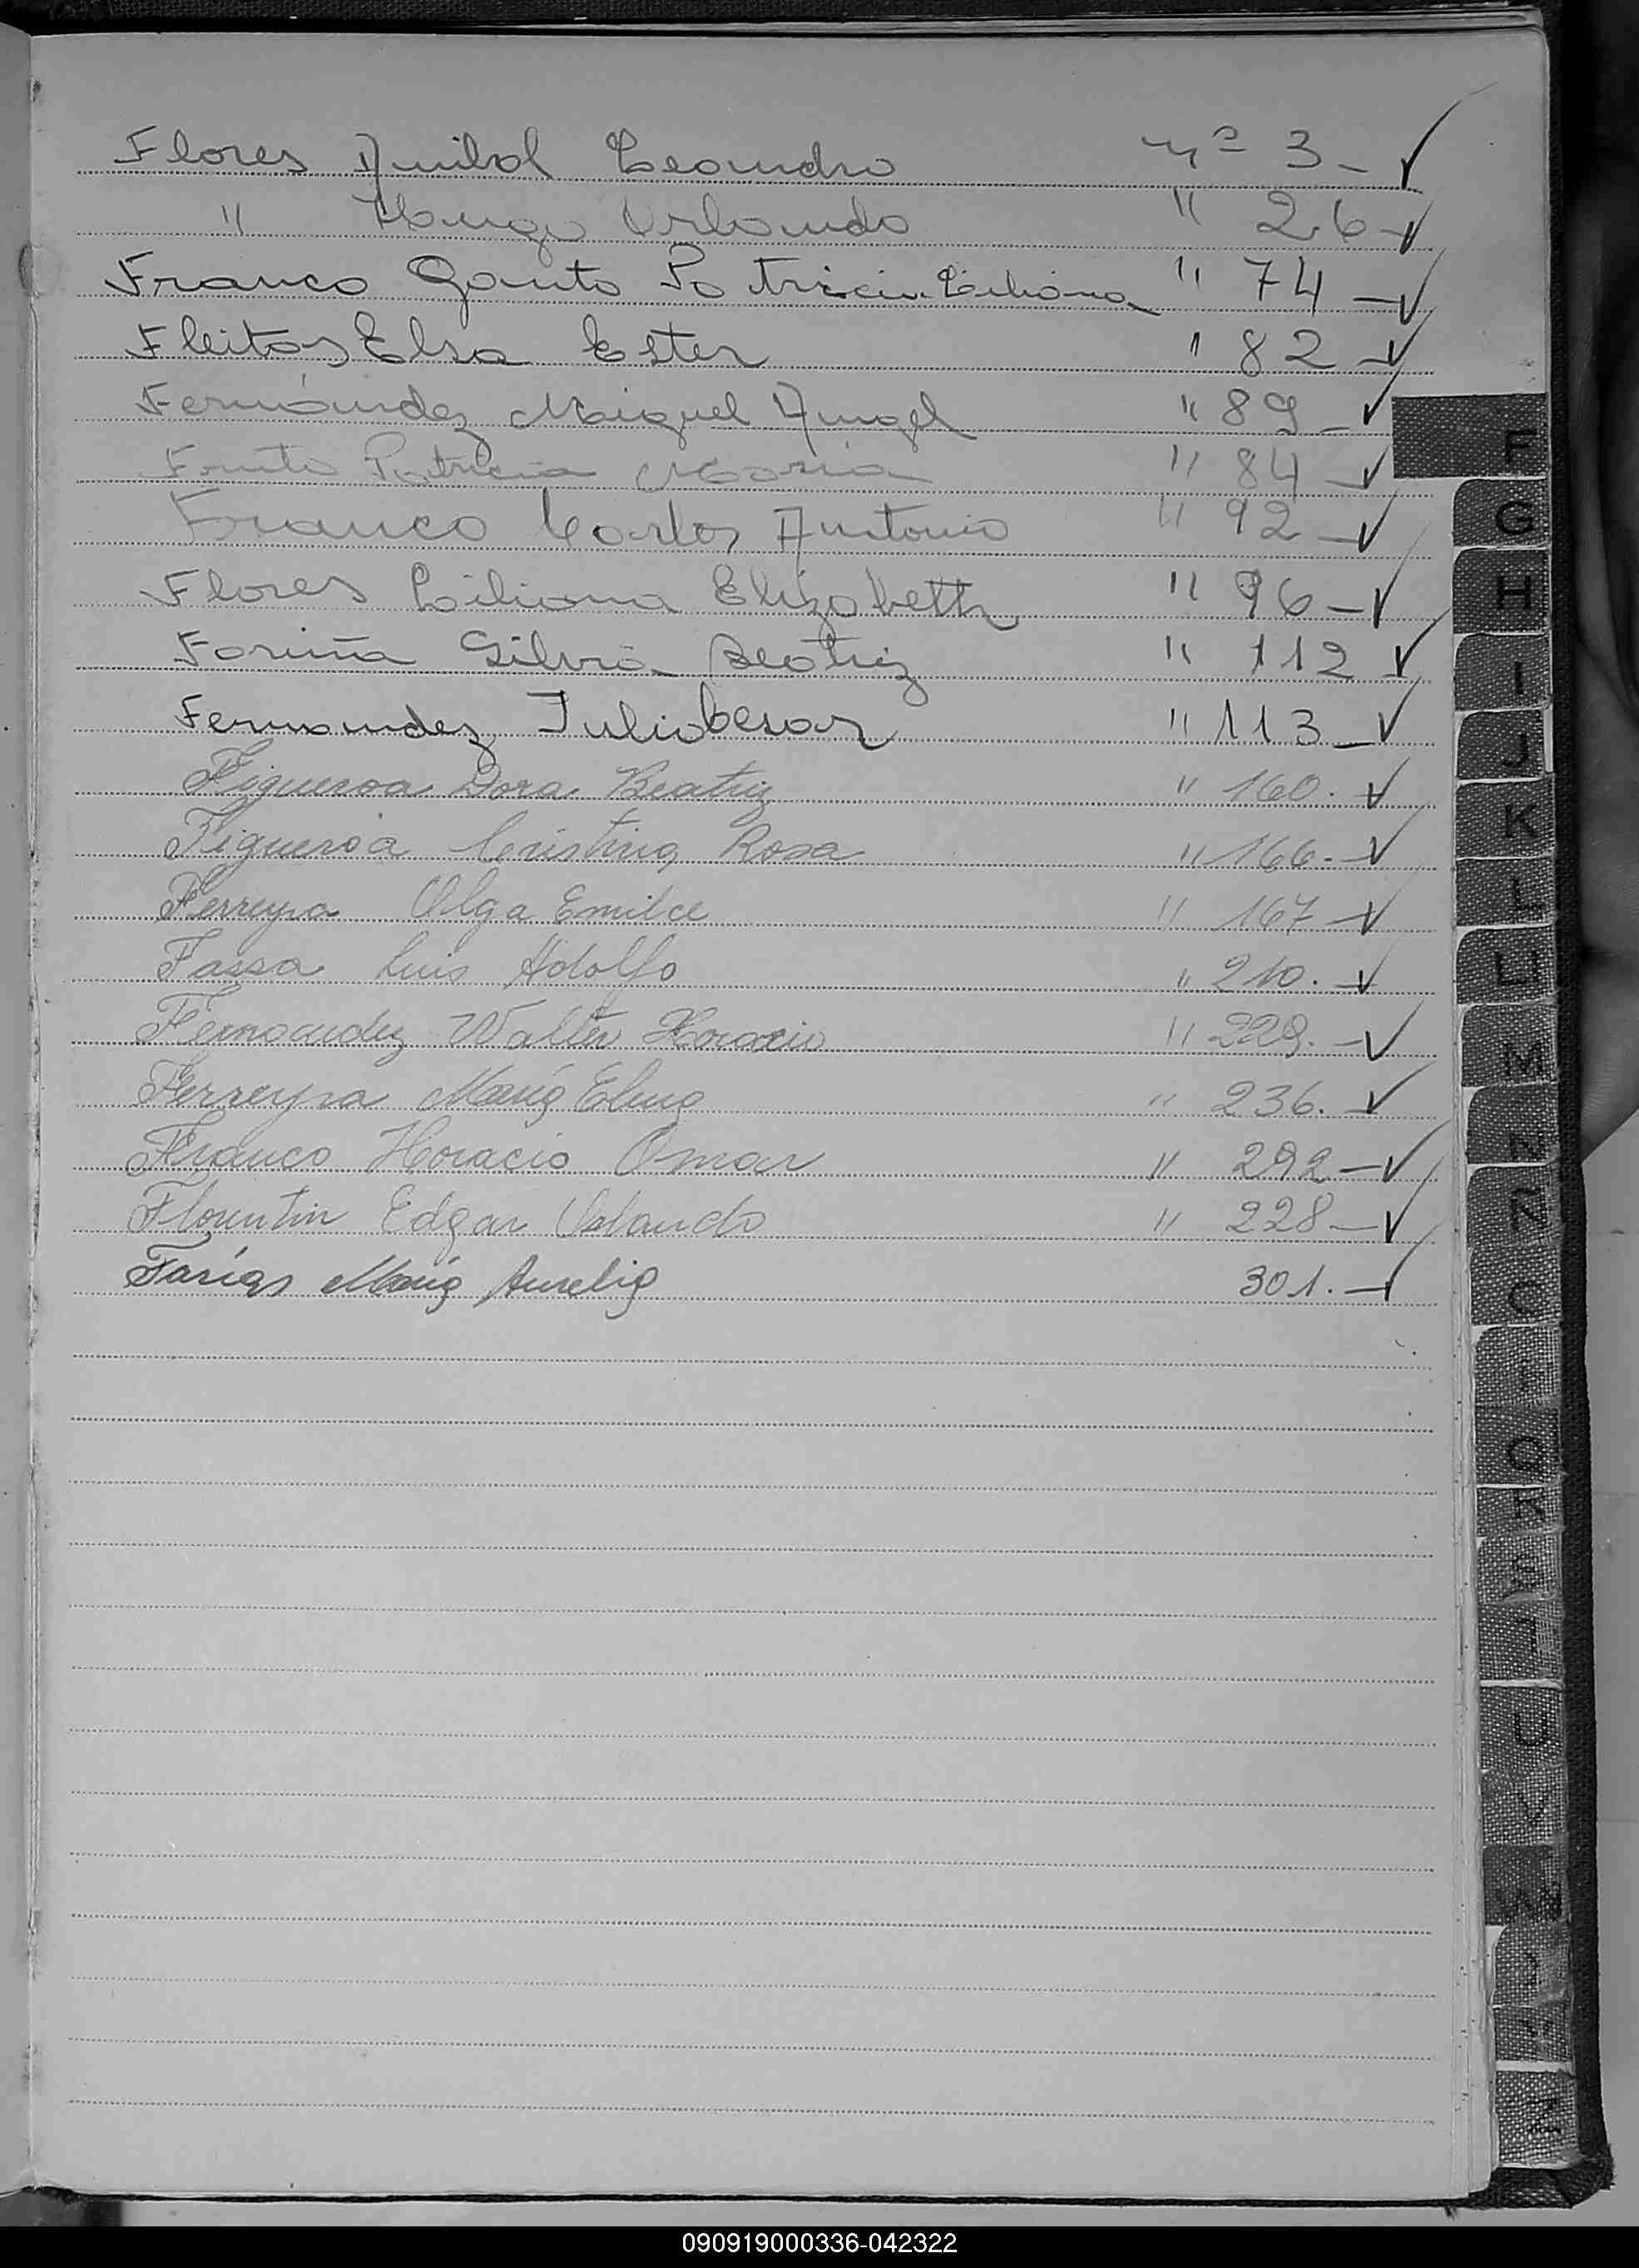 Flores Anibal Leandro nº 3 -
" Hugo Orlando " 26 -
Franco Gauto Patricia Liliana " 74 -
Fleitas Elsa Ester " 82 -
Fernández Miguel Angel " 89 -
Patricia Maria " 84 -
Franco Carlos Antonio " 92 -
Flores Liliana Elizabeth " 96 -
Fariña Silvia Beatriz " 112
Fernandez Julio Cesar " 113 -
Figueroa Dora Beatriz " 160. -
Figueroa Cristina Rosa " 166. -
Ferreyra Olga Emilce " 167 -
Fassa Luis Adolfo " 210. -
Fernandez Walter Horacio " 229. -
Ferreyra María Elena " 236. -
Franco Horacio Omar " 292 -
Florentin Edgar Orlando " 228 -
Farías María Aurelia 301. -
F
G
H
I
J
K
L
LL
M
N
Ñ
O
P
Q
R
S
T
U
V
W
X
Y
Z
090919000336-042322